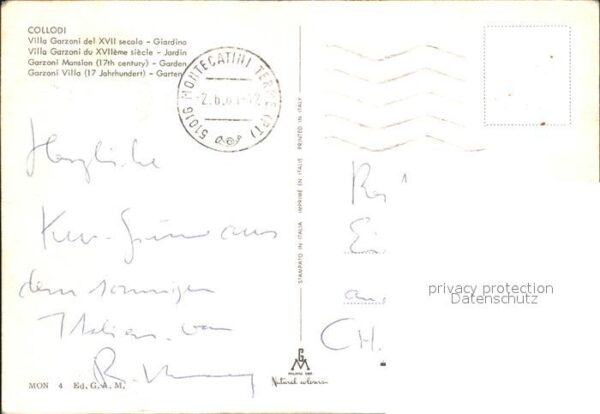 COLLODI
Villa Garzoni del XVII secolo - Giardino
Villa Garzoni du XVIIème siècle - Jardin
Garzoni Mansion (17th century) - Garden
Garzoni Villa (17 Jahrhundert) - Garten
51016 MONTECATINI TERME (PT)
Herzliche
Kur-Grüsse aus
dem sonnigen
Italien. von
CH.
STAMPATO IN ITALIA IMPRIMÉ EN ITALIE PRINTED IN ITALY
privacy protection
Datenschutz
MON 4 Ed. G. A. M.
Natural colours